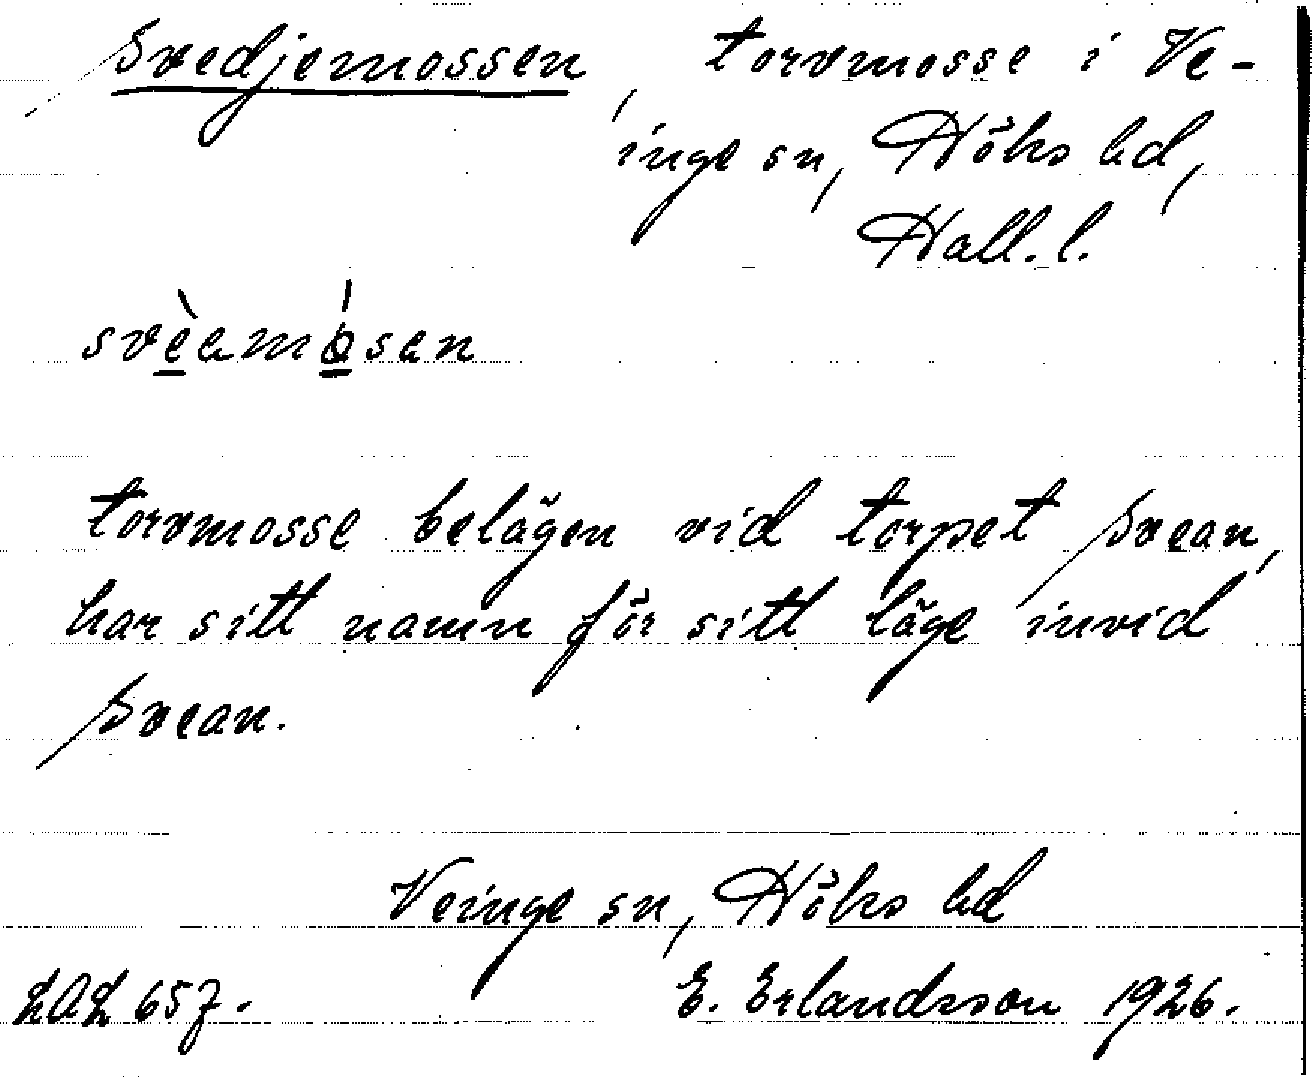 Svedjemossen, torvmosse i Ve-
inge sn, Höks hd,
Hall. l.
svèamósen
torvmosse belägen vid torpet Svean,
har sitt namn för sitt läge invid
Svean.
Veinge sn, Höks hd
LAL 657. E. Erlandsson 1926.